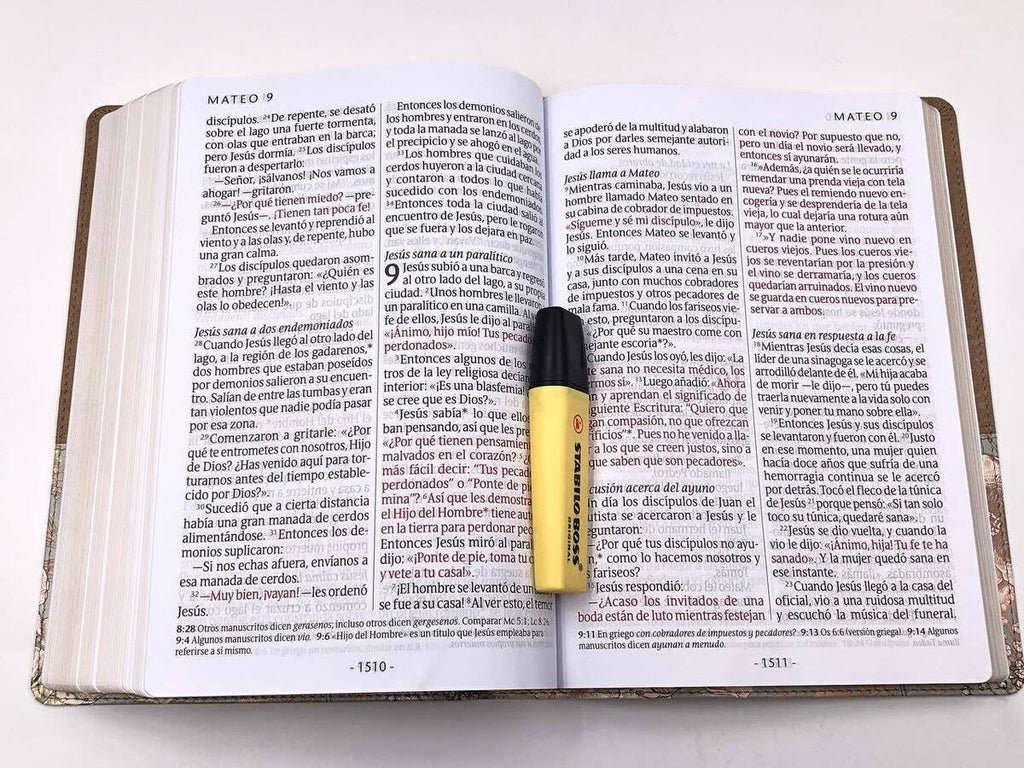 MATEO 9
discípulos. ²⁴De repente, se desató
sobre el lago una fuerte tormenta,
con olas que entraban en la barca;
pero Jesús dormía. ²⁵Los discípulos
fueron a despertarlo:
—Señor, ¡sálvanos! ¡Nos vamos a
ahogar! —gritaron.
²⁶—¿Por qué tienen miedo? —pre-
guntó Jesús—. ¡Tienen tan poca fe!
Entonces se levantó y reprendió al
viento y a las olas y, de repente, hubo
una gran calma.
²⁷Los discípulos quedaron asom-
brados y preguntaron: «¿Quién es
este hombre? ¡Hasta el viento y las
olas lo obedecen!».
Jesús sana a dos endemoniados
²⁸Cuando Jesús llegó al otro lado del
lago, a la región de los gadarenos,*
dos hombres que estaban poseídos
por demonios salieron a su encuen-
tro. Salían de entre las tumbas y eran
tan violentos que nadie podía pasar
por esa zona.
²⁹Comenzaron a gritarle: «¿Por
qué te entrometes con nosotros, Hijo
de Dios? ¿Has venido aquí para tor-
turarnos antes del tiempo estable-
cido por Dios?».
³⁰Sucedió que a cierta distancia
había una gran manada de cerdos
alimentándose. ³¹Entonces los de-
monios suplicaron:
—Si nos echas afuera, envíanos a
esa manada de cerdos.
³²—Muy bien, ¡vayan! —les ordenó
Jesús.
Entonces los demonios salieron de
los hombres y entraron en los cerdos
y toda la manada se lanzó al lago por
el precipicio y se ahogó en el agua.
³³Los hombres que cuidaban los
cerdos huyeron a la ciudad cercana
y contaron a todos lo que había
sucedido con los endemoniados.
³⁴Entonces toda la ciudad salió al
encuentro de Jesús, pero le rogaron
que se fuera y los dejara en paz.
Jesús sana a un paralítico
9 Jesús subió a una barca y regresó
al otro lado del lago, a su propia
ciudad. ²Unos hombres le llevaron
un paralítico en una camilla. Al
fe de ellos, Jesús le dijo al paralít
«¡Ánimo, hijo mío! Tus pecados
perdonados».
³Entonces algunos de los
tros de la ley religiosa decían
interior: «¡Es una blasfemia!
se cree que es Dios?».
⁴Jesús sabía* lo que ellos
ban pensando, así que les pre
«¿Por qué tienen pensamien
malvados en el corazón? ⁵¿
más fácil decir: "Tus pecad
perdonados" o "Ponte de pie
mina"? ⁶Así que les demostra
el Hijo del Hombre* tiene aut
en la tierra para perdonar pec
Entonces Jesús miró al paral
dijo: «¡Ponte de pie, toma tu c
y vete a tu casa!».
⁷¡El hombre se levantó de un
se fue a su casa! ⁸Al ver esto, el temor
8:28 Otros manuscritos dicen gerasenos; incluso otros dicen gergesenos. Comparar Mc 5:1; Lc 8:26.
9:4 Algunos manuscritos dicen vio. 9:6 «Hijo del Hombre» es un título que Jesús empleaba para
referirse a sí mismo.
- 1510 -
MATEO 9
se apoderó de la multitud y alabaron
a Dios por darles semejante autori-
dad a los seres humanos.
Jesús llama a Mateo
⁹Mientras caminaba, Jesús vio a un
hombre llamado Mateo sentado en
su cabina de cobrador de impuestos.
«Sígueme y sé mi discípulo», le dijo
Jesús. Entonces Mateo se levantó y
lo siguió.
¹⁰Más tarde, Mateo invitó a Jesús
y a sus discípulos a una cena en su
casa, junto con muchos cobradores
de impuestos y otros pecadores de
mala fama. ¹¹Cuando los fariseos vie
esto, preguntaron a los discípu-
«¿Por qué su maestro come con
ejante escoria*?».
Cuando Jesús los oyó, les dijo: «La
te sana no necesita médico, los
ermos sí». ¹³Luego añadió: «Ahora
n y aprendan el significado de
iguiente Escritura: "Quiero que
gan compasión, no que ofrezcan
rificios"*. Pues no he venido a lla-
a los que se creen justos, sino a
que saben que son pecadores».
cusión acerca del ayuno
n día los discípulos de Juan el
utista se acercaron a Jesús y le
eguntaron:
—¿Por qué tus discípulos no ayu-
n,* como lo hacemos nosotros y
fariseos?
Jesús respondió:
—¿Acaso los invitados de una
boda están de luto mientras festejan
con el novio? Por supuesto que no,
pero un día el novio será llevado, y
entonces sí ayunarán.
¹⁶»Además, ¿a quién se le ocurriría
remendar una prenda vieja con tela
nueva? Pues el remiendo nuevo en-
cogería y se desprendería de la tela
vieja, lo cual dejaría una rotura aún
mayor que la anterior.
¹⁷»Y nadie pone vino nuevo en
cueros viejos. Pues los cueros vie-
jos se reventarían por la presión y
el vino se derramaría, y los cueros
quedarían arruinados. El vino nuevo
se guarda en cueros nuevos para pre-
servar a ambos.
Jesús sana en respuesta a la fe
¹⁸Mientras Jesús decía esas cosas, el
líder de una sinagoga se le acercó y se
arrodilló delante de él. «Mi hija acaba
de morir —le dijo—, pero tú puedes
traerla nuevamente a la vida solo con
venir y poner tu mano sobre ella».
¹⁹Entonces Jesús y sus discípulos
se levantaron y fueron con él. ²⁰Justo
en ese momento, una mujer quien
hacía doce años que sufría de una
hemorragia continua se le acercó
por detrás. Tocó el fleco de la túnica
de Jesús ²¹porque pensó: «Si tan solo
toco su túnica, quedaré sana».
²²Jesús se dio vuelta, y cuando la
vio le dijo: «¡Ánimo, hija! Tu fe te ha
sanado». Y la mujer quedó sana en
ese instante.
²³Cuando Jesús llegó a la casa del
oficial, vio a una ruidosa multitud
y escuchó la música del funeral.
9:11 En griego con cobradores de impuestos y pecadores? 9:13 Os 6:6 (versión griega). 9:14 Algunos
manuscritos dicen ayunan a menudo.
- 1511 -
STABILO BOSS
ORIGINAL